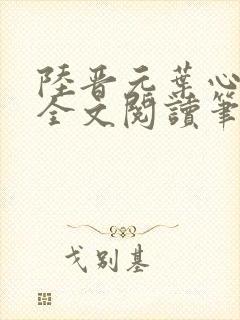 陸晉元葉心
全文閱讀筆
戈別基